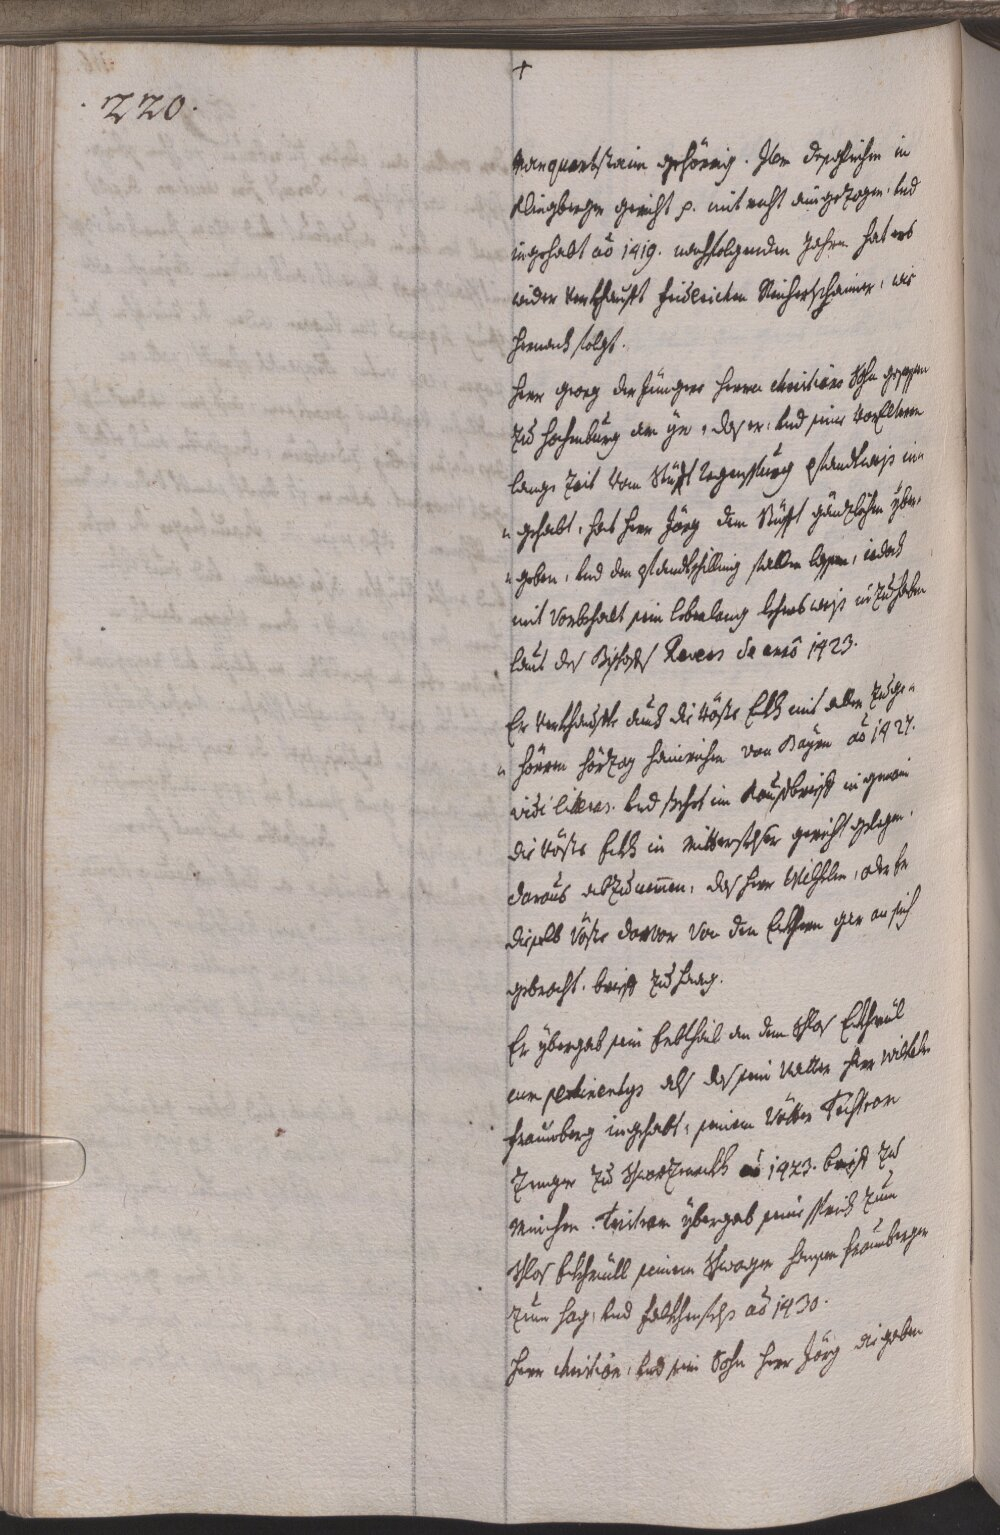 220.
+
Marquartstain gehörrig. Item dergleichen in
Klingberger gericht p. mit recht eingezogen, und
ingehabt aō 1419. nachfolgenden Jahrn hat ers
wider verkhaufft Fridrichen Aicherschaimer, wie
hernach folgt.
Herr Georg der Jüngere herrn Christian Sohn gesessen
zu Hochenburg am Yn, das er, und seine Vorältern
lange Zeit vom Stüfft Regenspurg pfandtweis inn
gehabt, hat herr Jörg dem Stüfft gäntzlichen über
geben, und den pfandtschilling fallen lassen, iedoch
mit Vorbehalt sein lebenlang leibsweis inzuhaben
laut des Bischofs Revers de annō 1423.
Er verkhauffte auch die Vösste Ekh mit aller zuge
hörren Hörzog Hainrichen von Bayrn aō 1427.
vidi literas. und stehet im Kaufbrieff in gemain
die Vösste Ekh in Mitterfelser gericht gelegen,
daraus abzunemmen, das herr Wilhelm, oder Er
dieselb Vösste darvor von den Ekhern gar an sich
gebracht. brieff zu Haag.
Er übergab sein Erbthail an dem Schlos Ekhmül
cum pertinentys als das sein Vatter herr Wilhelm
Fraunberg ingehabt, seinem Vötter Tristram
Zenger zu Schwarzenekh aō 1423. brieff zu
München. Tristram übergab seine sprüch zum
Schlos Ekhmüll seinem Schwager Hansen Fraunberger
zum Hag, und Falkhenfels aō 1430.
Herr Christian, und sein Sohn herr Jörg die gaben